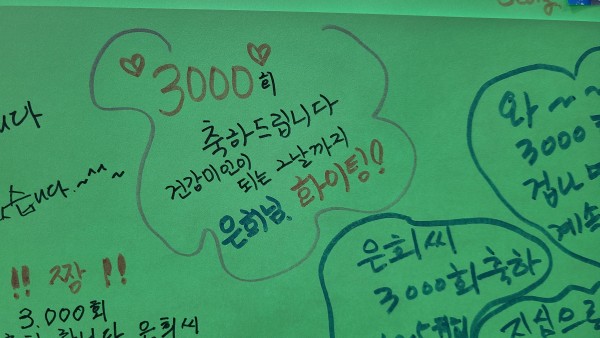 3000회
축하드립니다
건강미인이
되는 그날까지
은희님, 화이팅!
습니다.~^^~
!! 짱 !!
3,000회
은희씨
은희씨
3000회 축하
와~~
3000
겁나
계속
지심으로